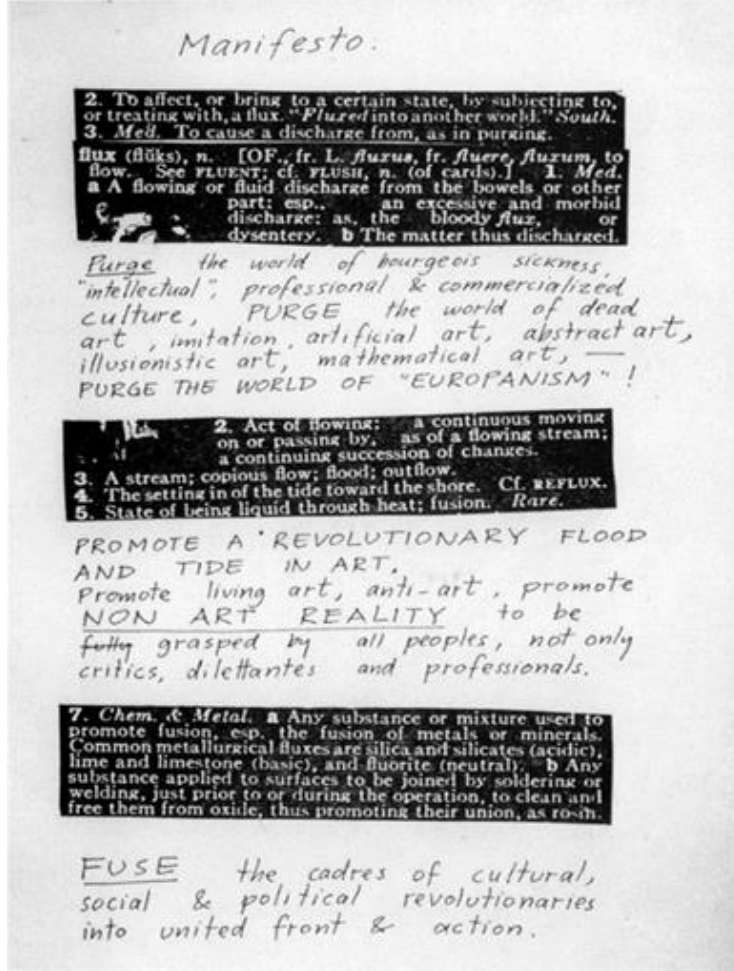 Manifesto.
2. To affect, or bring to a certain state, by subjecting to,
or treating with, a flux. "Fluxed into another world." South.
3. Med. To cause a discharge from, as in purging.
flux (flŭks), n. [OF., fr. L. fluxus, fr. fluere, fluxum, to
flow. See FLUENT; cf. FLUSH, n. (of cards).] 1. Med.
a A flowing or fluid discharge from the bowels or other
part; esp., an excessive and morbid
discharge: as, the bloody flux, or
dysentery. b The matter thus discharged.
Purge the world of bourgeois sickness,
"intellectual", professional & commercialized
culture, PURGE the world of dead
art, imitation, artificial art, abstract art,
illusionistic art, mathematical art, —
PURGE THE WORLD OF "EUROPANISM"!
2. Act of flowing: a continuous moving
on or passing by, as of a flowing stream;
a continuing succession of changes.
3. A stream; copious flow; flood; outflow.
4. The setting in of the tide toward the shore. Cf. REFLUX.
5. State of being liquid through heat; fusion. Rare.
PROMOTE A REVOLUTIONARY FLOOD
AND TIDE IN ART.
Promote living art, anti-art, promote
NON ART REALITY to be
fully grasped by all peoples, not only
critics, dilettantes and professionals.
7. Chem. & Metal. a Any substance or mixture used to
promote fusion, esp. the fusion of metals or minerals.
Common metallurgical fluxes are silica and silicates (acidic),
lime and limestone (basic), and fluorite (neutral). b Any
substance applied to surfaces to be joined by soldering or
welding, just prior to or during the operation, to clean and
free them from oxide, thus promoting their union, as rosin.
FUSE the cadres of cultural,
social & political revolutionaries
into united front & action.